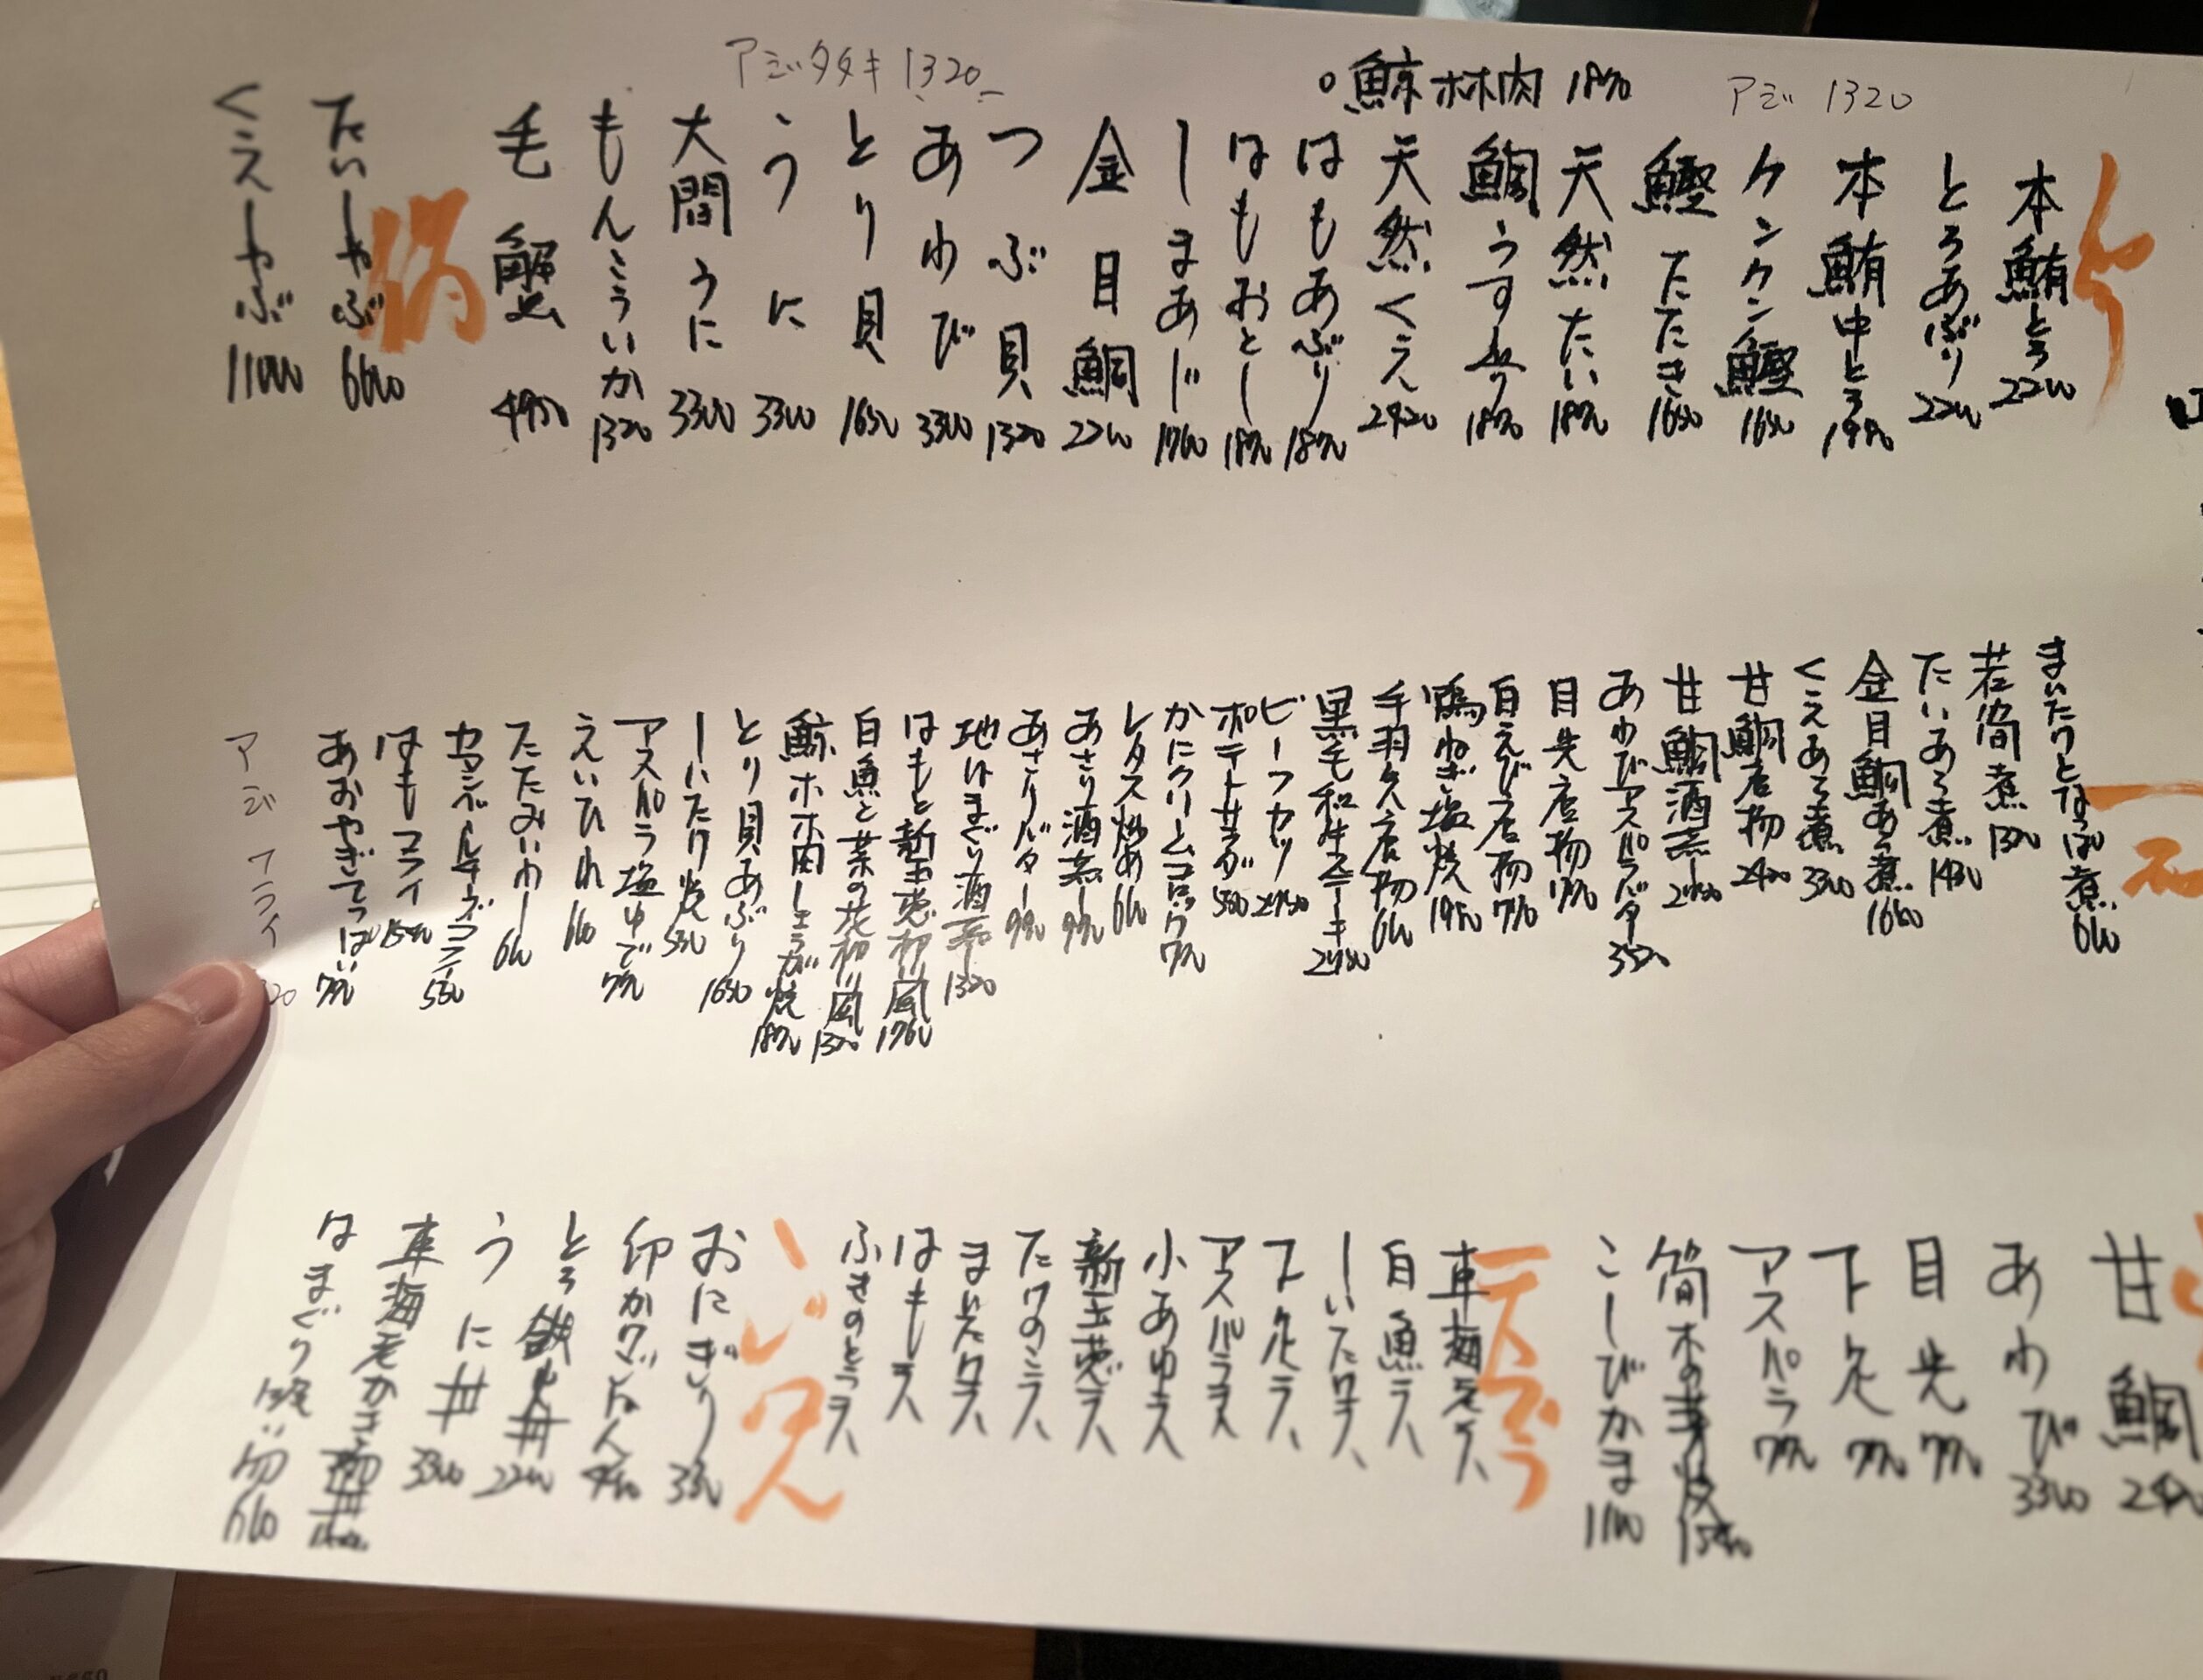 アジタタキ 1320
鯨ホホ肉 1870
アジ 1320
本鮪とろ 2200
とろあぶり 2200
本鮪中とろ 1980
ケンケン鰹 1650
鰹たたき 1650
天然たい 1870
鯛うす造り 1870
天然くえ 2420
はもあぶり 1870
はもおとし 1870
しまあじ 1760
金目鯛 2200
つぶ貝 1320
あわび 3300
とり貝 1650
うに 3300
大間うに 3300
もんこういか 1320
毛蟹 4950
鍋
たいしゃぶ 6600
くえしゃぶ 11000
一品
まいたけとなっぱ煮 660
若筍煮 1320
たいあら煮 1430
金目鯛あら煮 1650
くえあら煮 3300
甘鯛唐揚 2420
甘鯛酒蒸 2420
あわびアスパラバタ 3520
目光唐揚 770
白えび唐揚 770
鴨ねぎ塩焼 1980
手羽先唐揚 660
黒毛和牛ステーキ 2980
ビーフカツ
ポテトサラダ 550
かにクリームコロッケ 770
レタス炒め 660
あさり酒蒸し 990
あさりバター 990
地はまぐり酒蒸 1320
はもと新玉葱和風 1760
白魚と菜の花和風 1320
鯨ホホ肉しょうが焼 1870
とり貝あぶり 1650
しいたけ焼 550
アスパラ塩ゆで 770
えいひれ 660
たたみいわし 660
カマンベールチーズフライ 550
はもフライ
あおやぎてっぱい 770
アジフライ
甘鯛
あわび 3300
目光 770
下足 770
アスパラ 770
筍木の芽焼
こしびかま 1100
天ぷら
車海老天
白魚天
しいたけ天
下足天
アスパラ天
小あゆ天
新玉葱天
たけのこ天
まいたけ天
はも天
ふきのとう天
ごはん
おにぎり 330
卵かけごはん
とろ鉄火丼 2200
うに丼 3300
車海老かき揚丼
はまぐり吸い物 660